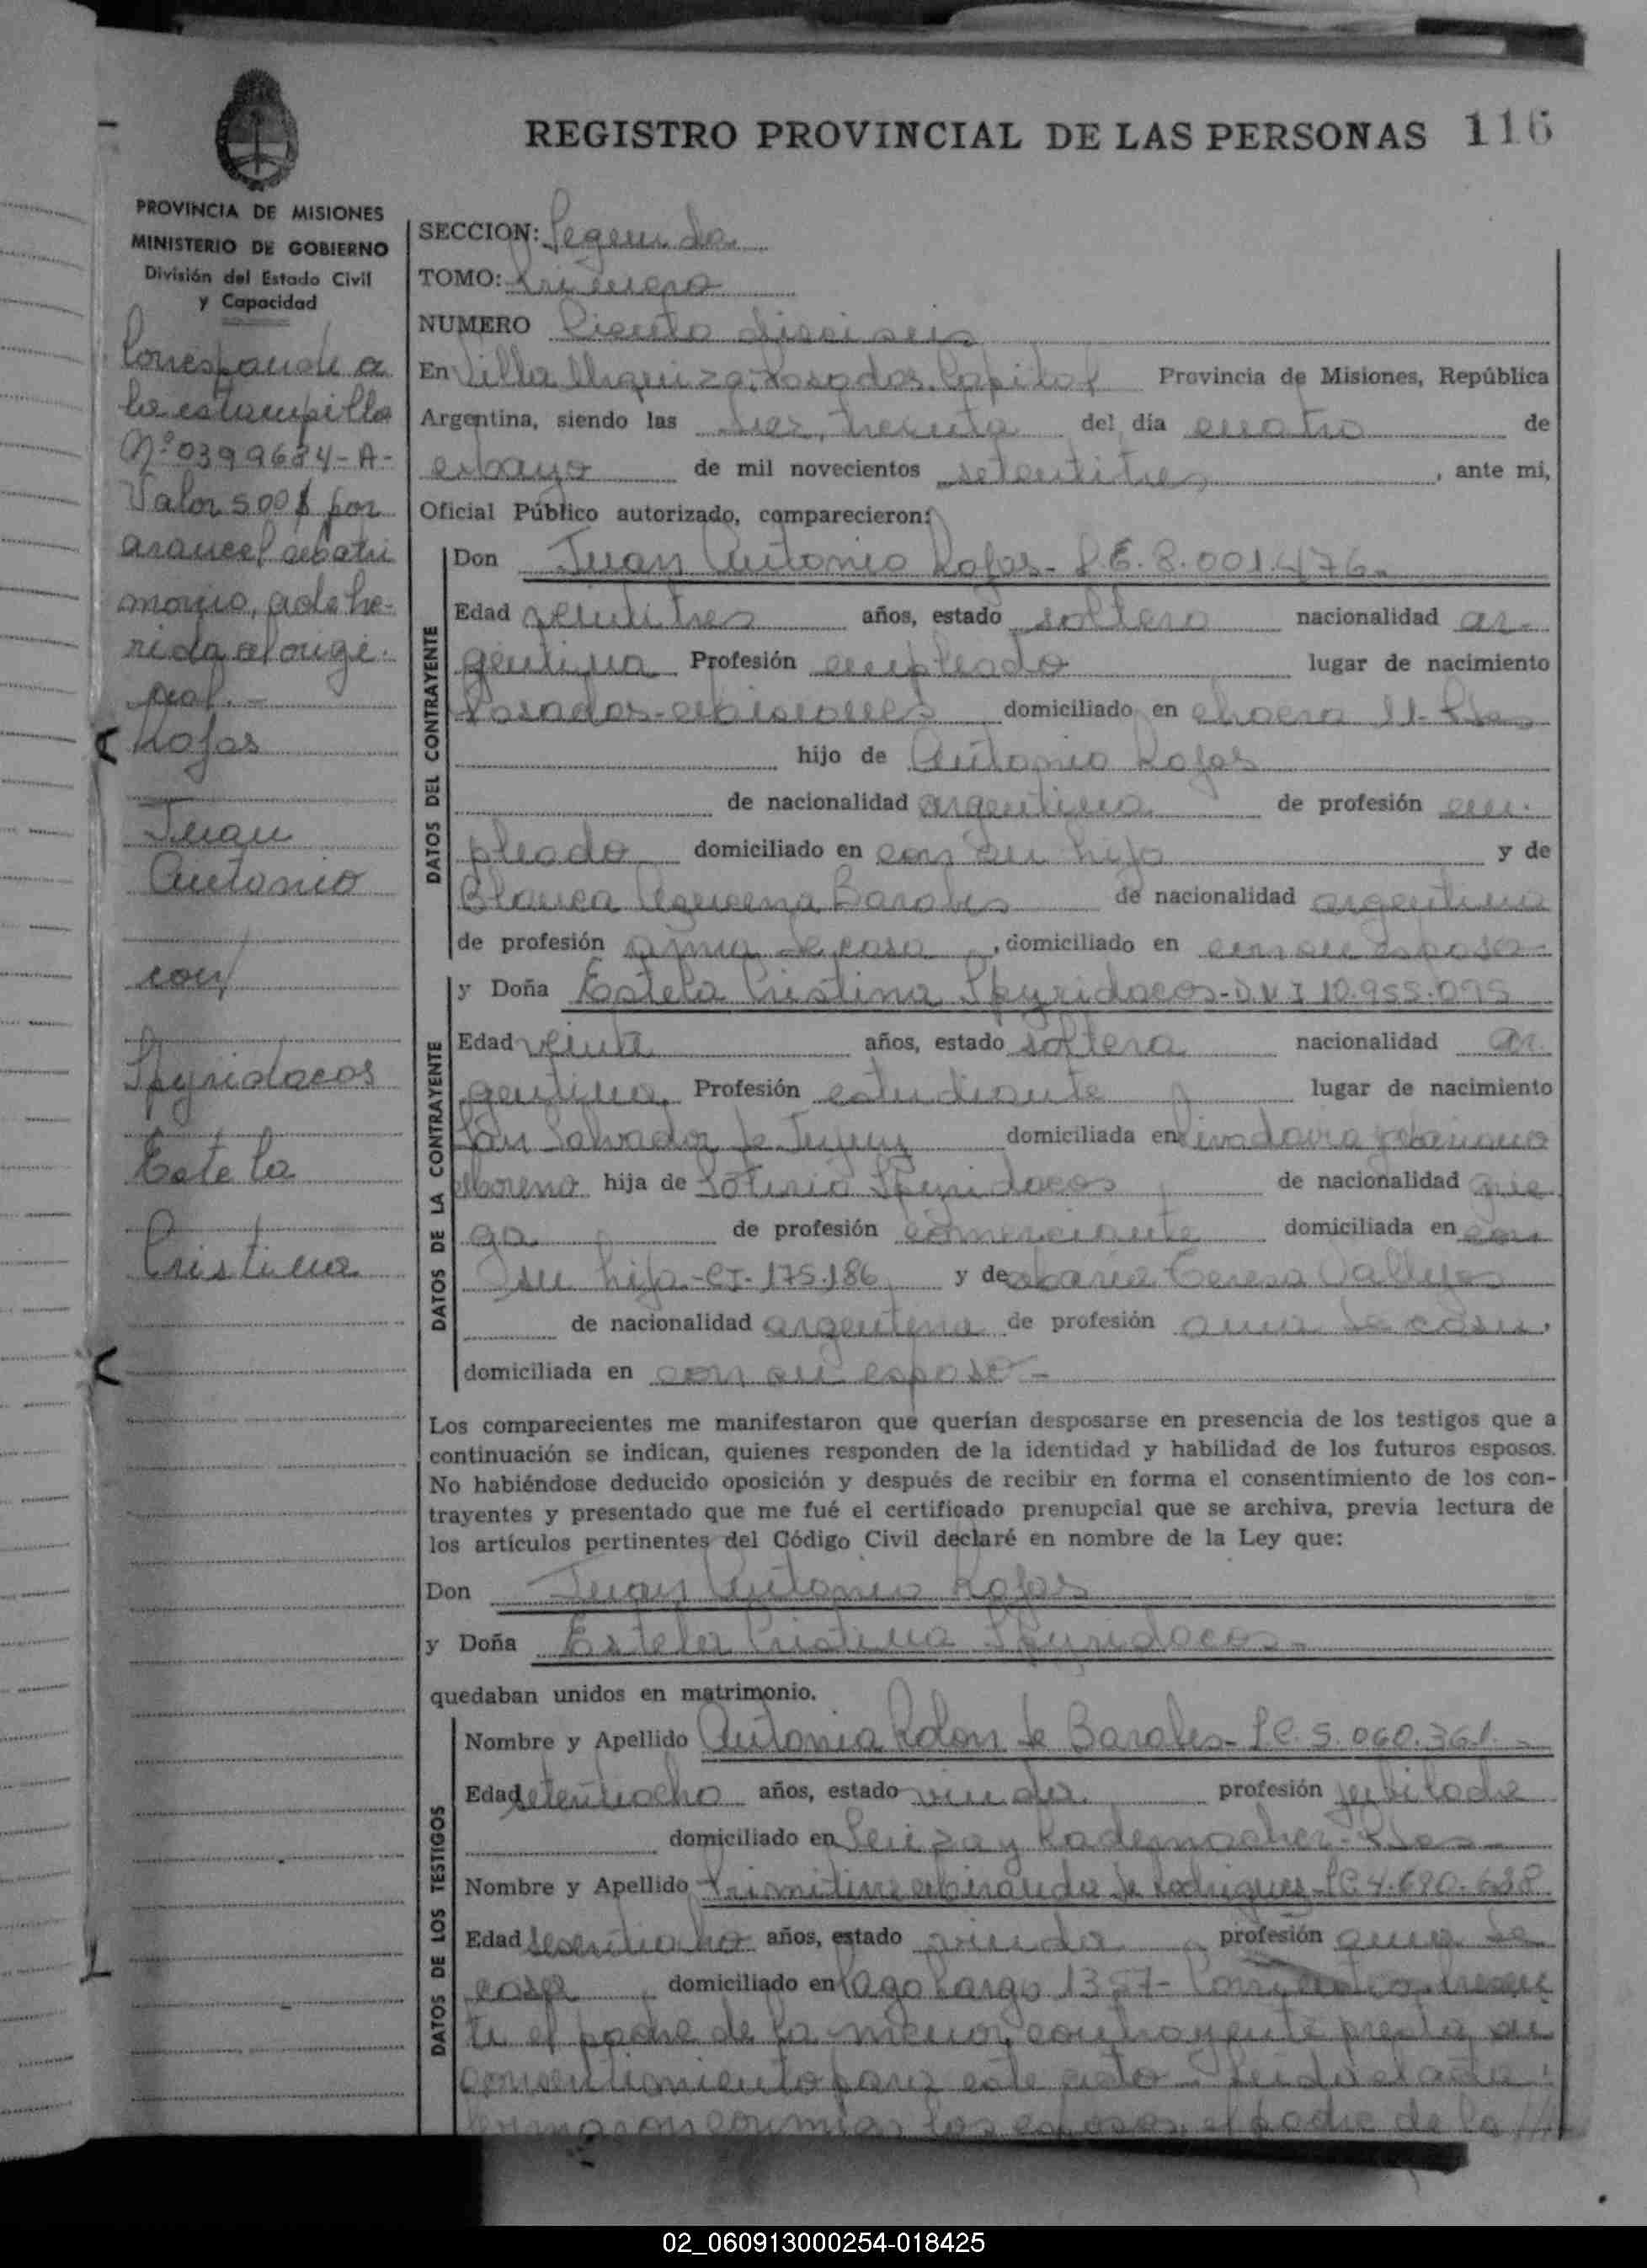 REGISTRO PROVINCIAL DE LAS PERSONAS 116
PROVINCIA DE MISIONES
MINISTERIO DE GOBIERNO
División del Estado Civil
y Capacidad
Corresponde a
la estampilla
Nº 0399684-A-
Valor 500$ por
arancel de matri
monio, adhe-
rida al origi-
nal.-
Rojas
Juan
Antonio
con
Spyridacos
Estela
Cristina
SECCION: Segunda
TOMO: Primero
NUMERO Ciento dieciseis
En Villa Urquiza, Posadas, Capital Provincia de Misiones, República
Argentina, siendo las diez, treinta del día cuatro de
mayo de mil novecientos setentitres, ante mi,
Oficial Público autorizado, comparecieron:
DATOS DEL CONTRAYENTE
Don Juan Antonio Rojas- L.E. 8.001.476-
Edad veintitres años, estado soltero nacionalidad ar-
gentina Profesión empleado lugar de nacimiento
Posadas-Misiones domiciliado en chacra 11- Pdas
hijo de Antonio Rojas
de nacionalidad argentina de profesión em-
pleado domiciliado en con su hijo y de
Blanca Barales de nacionalidad argentina
de profesión ama de casa, domiciliado en con su esposo-
DATOS DE LA CONTRAYENTE
y Doña Estela Cristina Spyridacos- D.N.I 10.955.095
Edad veinte años, estado soltera nacionalidad ar-
gentina Profesión estudiante lugar de nacimiento
San Salvador de Jujuy domiciliada en Rivadavia y Mariano
Moreno hija de Sotirio Spyridacos de nacionalidad grie
ga de profesión comerciante domiciliada en con
su hija-CI- 175.186 y de María Teresa Vallejos
de nacionalidad argentina de profesión ama de casa,
domiciliada en con su esposo-
Los comparecientes me manifestaron que querían desposarse en presencia de los testigos que a
continuación se indican, quienes responden de la identidad y habilidad de los futuros esposos.
No habiéndose deducido oposición y después de recibir en forma el consentimiento de los con-
trayentes y presentado que me fué el certificado prenupcial que se archiva, previa lectura de
los artículos pertinentes del Código Civil declaré en nombre de la Ley que:
Don Juan Antonio Rojas
y Doña Estela Cristina Spyridacos-
quedaban unidos en matrimonio.
DATOS DE LOS TESTIGOS
Nombre y Apellido Antonia Rolon de Barales- LC. 5.060.361-
Edad setentiocho años, estado viuda profesión jubilada
domiciliado en y Rademacher- Pdas-
Nombre y Apellido Primitiva Miranda de Rodriguez- LC 4.680.688
Edad sesentiocho años, estado viuda profesión ama de
casa domiciliado en Pago Largo 1357- Corrientes, Presen
te el padre de la menor contrayente presta su
consentimiento para este acto- Leida el acta
firmaron conmigo los esposos, el padre de la
02_060913000254-018425